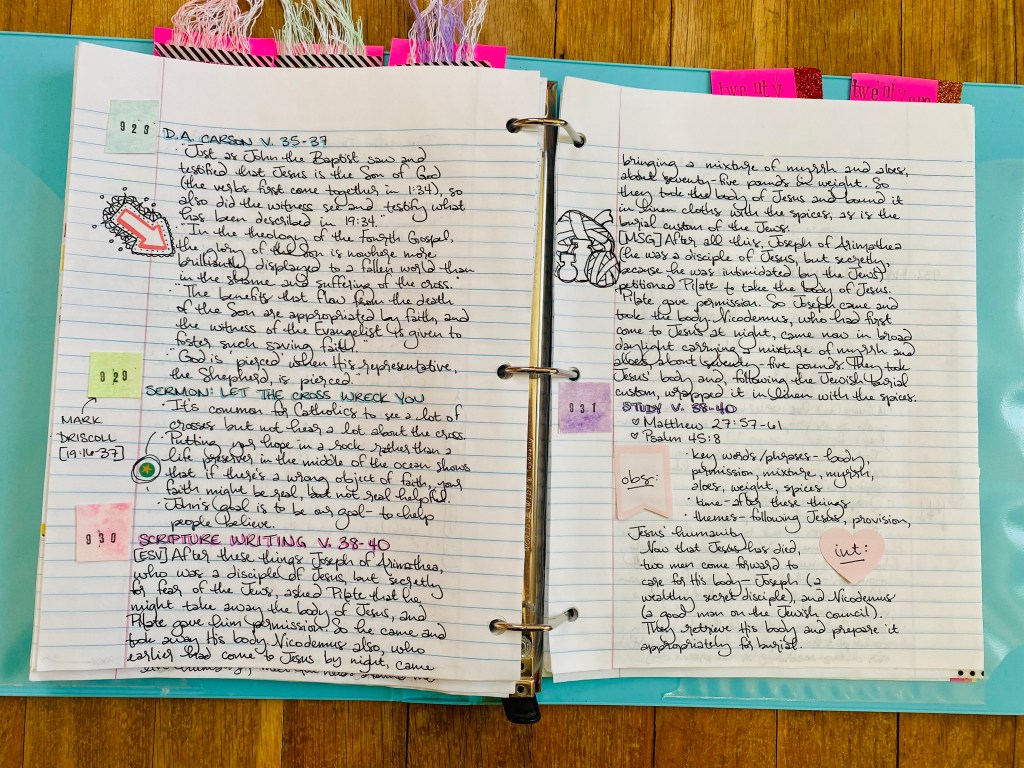 twenty
twenty one
928
D.A. CARSON V. 35-37
· "Just as John the Baptist saw and
testified that Jesus is the Son of God
(the verbs first come together in 1:34), so
also did the witness see and testify what
has been described in 19:34."
· "In the theology of the Fourth Gospel,
the glory of the Son is nowhere more
brilliantly displayed to a fallen world than
in the shame and suffering of the cross."
· "The benefits that flow from the death
of the Son are appropriated by faith, and
the witness of the Evangelist is given to
foster such saving faith."
· "God is 'pierced' when His representative,
the Shepherd, is pierced."
929
SERMON: LET THE CROSS WRECK YOU
MARK
DRISCOLL
[19:16-37]
· It's common for Catholics to see a lot of
crosses but not hear a lot about the cross.
· Putting your hope in a rock rather than a
life preserver in the middle of the ocean shows
that if there's a wrong object of faith, your
faith might be real, but not real helpful.
· John's goal is to be our goal- to help
people believe.
930
SCRIPTURE WRITING V. 38-40
[ESV] After these things Joseph of Arimathea,
who was a disciple of Jesus, but secretly
for fear of the Jews, asked Pilate that he
might take away the body of Jesus, and
Pilate gave him permission. So he came and
took away His body. Nicodemus also, who
earlier had come to Jesus by night, came
bringing a mixture of myrrh and aloes,
about seventy-five pounds in weight. So
they took the body of Jesus and bound it
in linen cloths with the spices, as is the
burial custom of the Jews.
[MSG] After all this, Joseph of Arimathea
(he was a disciple of Jesus, but secretly,
because he was intimidated by the Jews)
petitioned Pilate to take the body of Jesus.
Pilate gave permission. So Joseph came and
took the body. Nicodemus, who had first
come to Jesus at night, came now in broad
daylight carrying a mixture of myrrh and
aloes, about seventy-five pounds. They took
Jesus' body and, following the Jewish burial
custom, wrapped it in linen with the spices.
931
STUDY V. 38-40
♡ Matthew 27:57-61
♡ Psalm 45:8
obs:
· key words/phrases- body,
permission, mixture, myrrh,
aloes, weight, spices
· time- after these things
· themes- following Jesus, provision,
Jesus' humanity
int:
Now that Jesus has died,
two men come forward to
care for His body- Joseph (a
wealthy secret disciple), and Nicodemus
(a good man on the Jewish council).
They retrieve His body and prepare it
appropriately for burial.